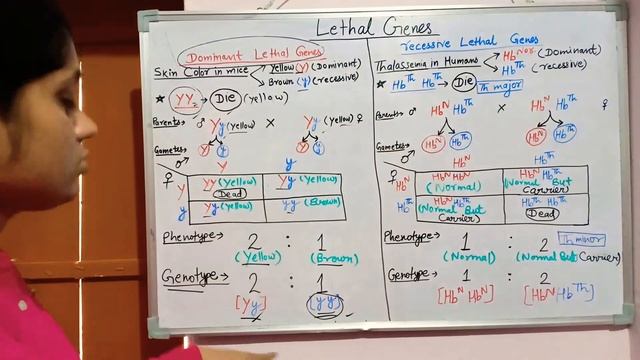 Lethal Genes
Dominant Lethal Genes
Skin Color in mice
Yellow (Y) (Dominant)
Brown (y) (recessive)
★ YY → Die (Yellow)
Parents→ ♂ Yy (Yellow) × Yy (Yellow) ♀
Gametes→ Y y Y y
♂ Y y
♀
Y YY (Yellow) Dead Yy (Yellow)
y Yy (Yellow) yy (Brown)
Phenotype→ 2 : 1
(Yellow) (Brown)
Genotype→ 2 : 1
[Yy] [yy]
recessive Lethal Genes
Thalassemia in Humans
(Dominant)
Hbᵀʰ (recessive)
★ Hbᵀʰ Hbᵀʰ → Die Th major
Parents→ ♂ Hbᴺ Hbᵀʰ × Hbᴺ Hbᵀʰ ♀
Gametes→ Hbᴺ Hbᵀʰ Hbᴺ Hbᵀʰ
♂ Hbᴺ Hbᵀʰ
♀
Hbᴺ Hbᴺ Hbᴺ (Normal) Hbᴺ Hbᵀʰ (Normal But Carrier)
Hbᵀʰ Hbᴺ Hbᵀʰ (Normal But Carrier) Hbᵀʰ Hbᵀʰ Dead
Phenotype→ 1 : 2 Th minor
(Normal) (Normal But Carrier)
Genotype→ 1 : 2
[Hbᴺ Hbᴺ] [Hbᴺ Hbᵀʰ]